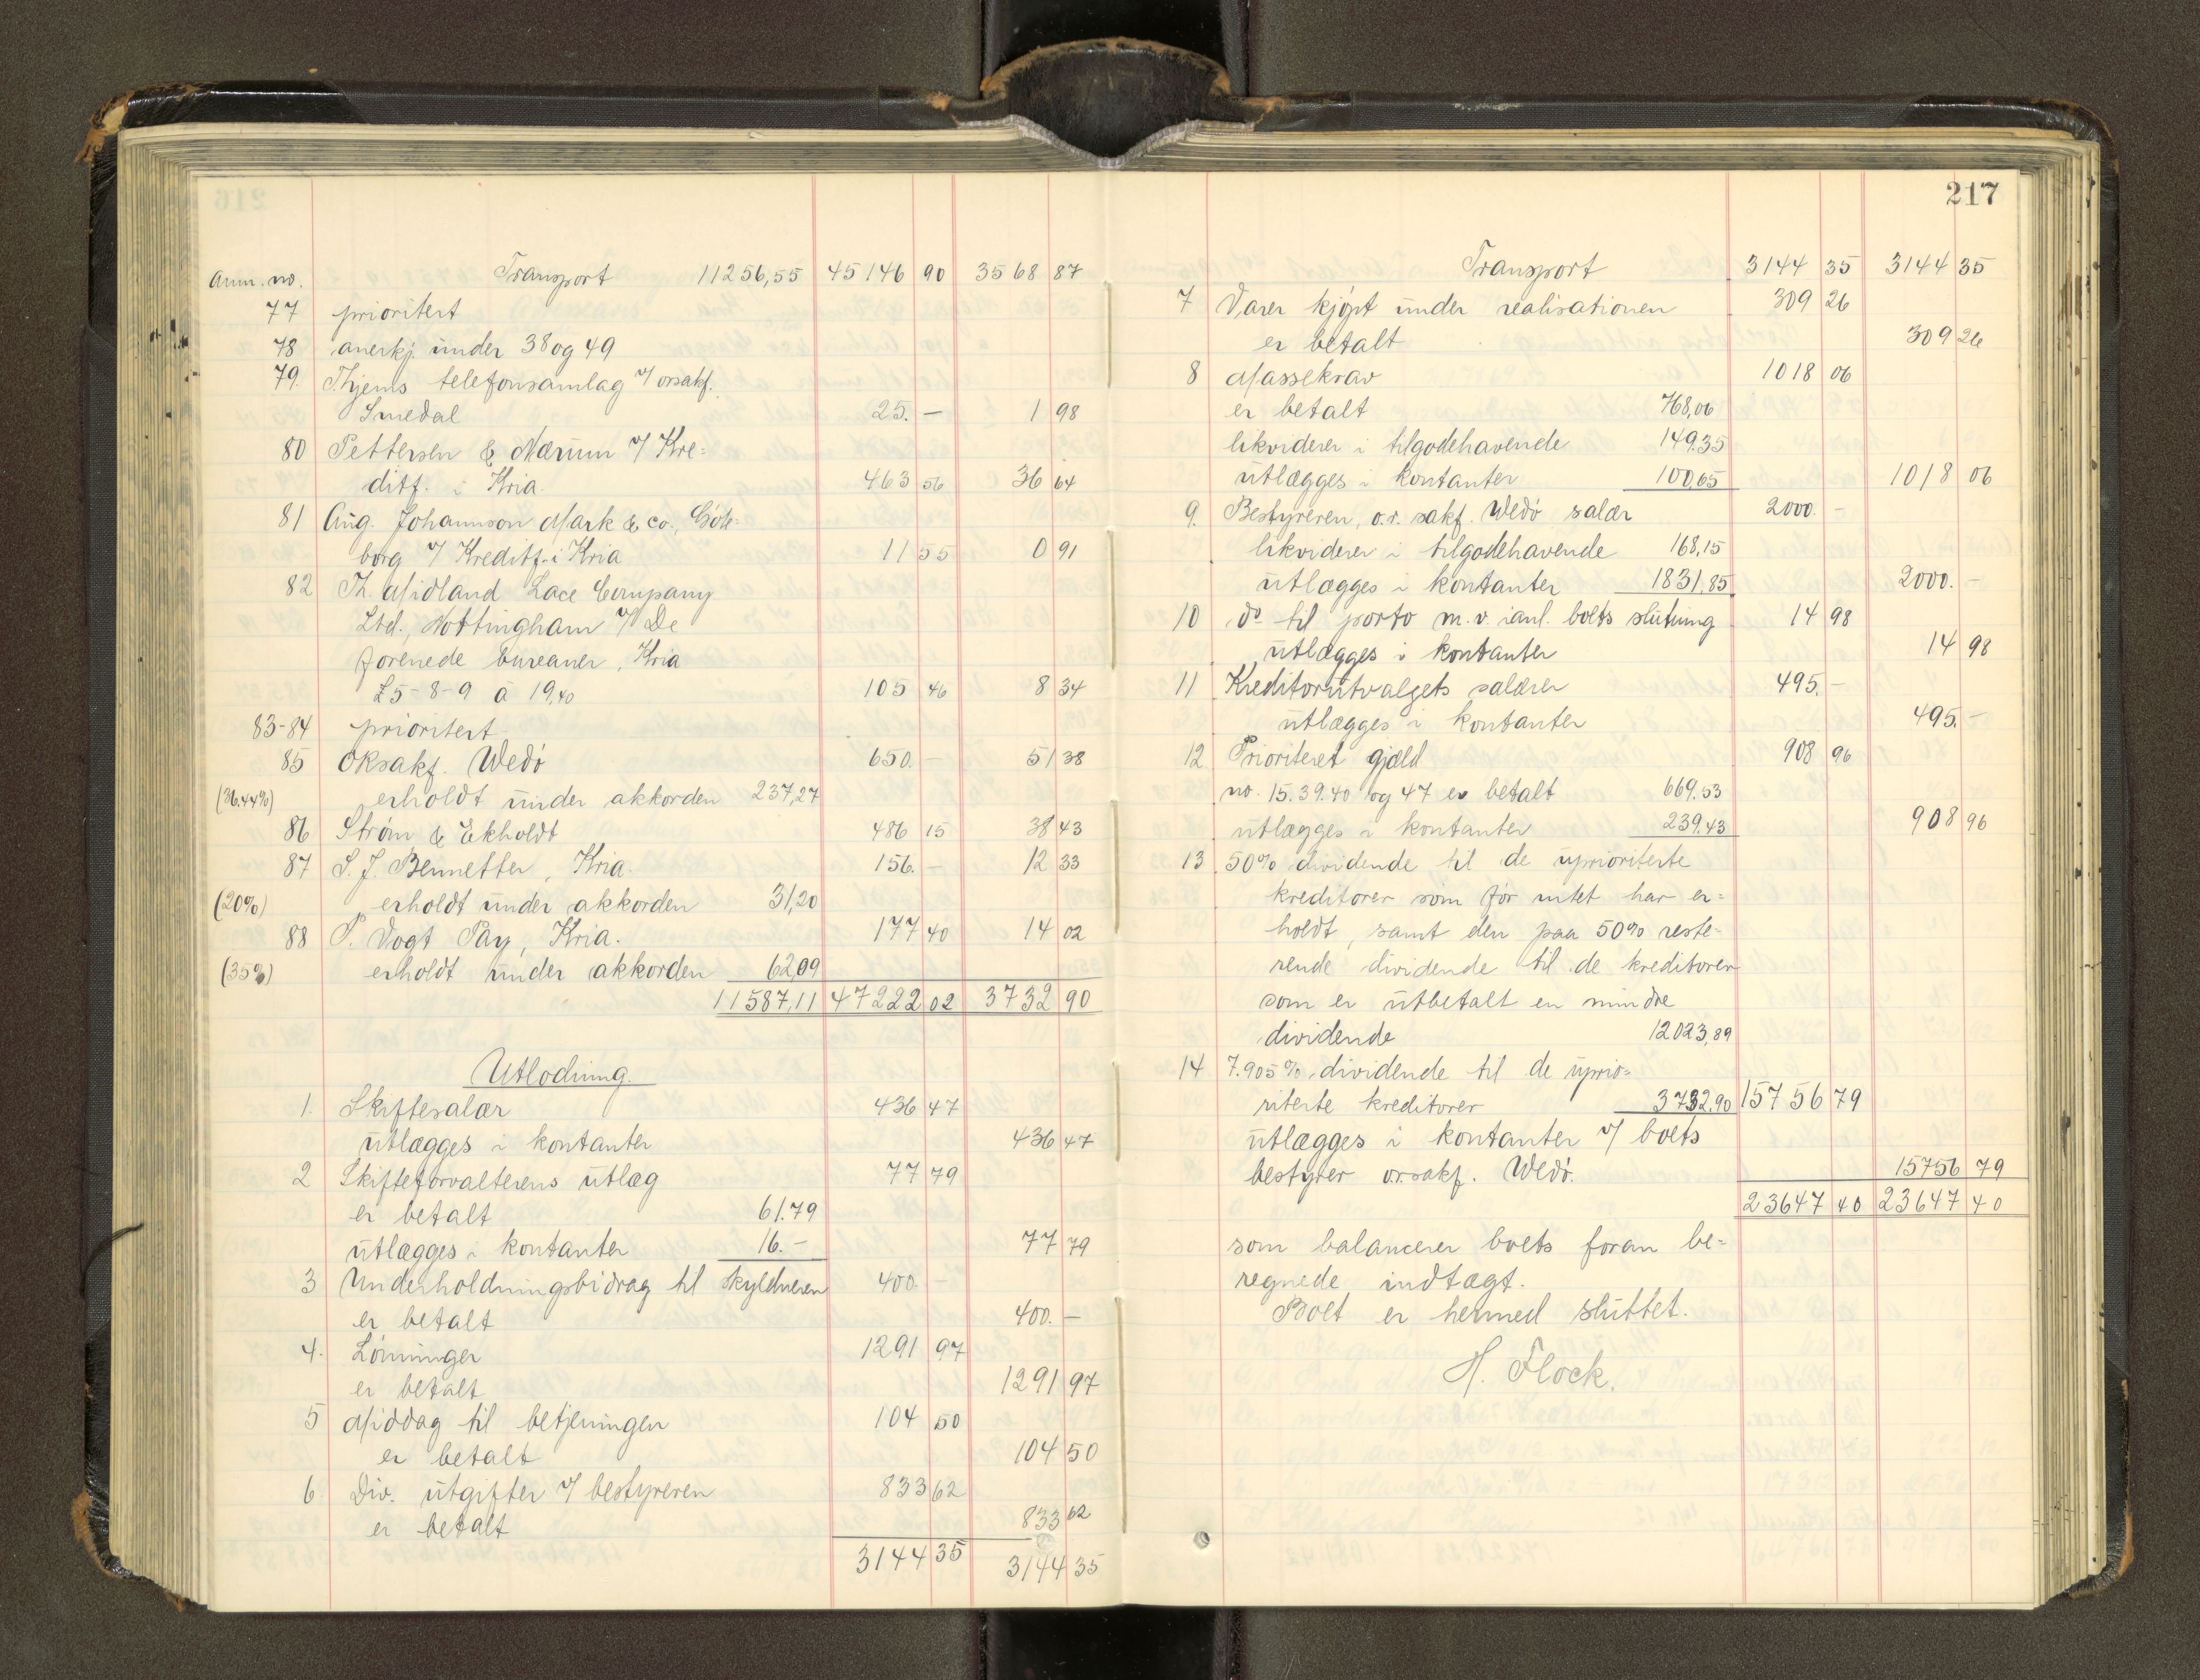 Anm. no. Transport 11256,55 45146 90 3568 87
77 prioritert
78 anerkj. under 38 og 49
79. Thjems telefonsamlag v/ orsakf.
Smedal 25.- 1 98
80 Pettersen & Nærum v/ Kre=
ditf. i Kria. 463 56 36 64
81 Aug. Johannson Mark & co., Göte=
borg v/ Kreditf. i Kria 11 55 0 91
82 Th. Midland Lace Company
Ltd., Nottingham v/ De
forenede bureauer, Kria
£5-8-9 a 19,40 105 46 8 34
83-84 prioritert
85 Oksakf. Wedö 650.- 51 38
(36.44%) erholdt under akkorden 237,27
86 Strøm & Ekholdt 486 15 38 43
87 S. J. Bennetter, Kria. 156.- 12 33
(20%) erholdt under akkorden 31,20
88 P. Vogt Pay, Kria. 177 40 14 02
(35%) erholdt under akkorden 62,09
11587,11 47222 02 3732 90
Utlodning.
1. Skiftesalær 436 47
utlægges i kontanter 436 47
2 Skifteforvalterens utlæg 77 79
er betalt 61.79
utlægges i kontanter 16.- 77 79
3 Underholdningsbidrag til skyldneren 400.-
er betalt 400.-
4. Lønninger 1291 97
er betalt 1291 97
5 Middag til betjeningen 104 50
er betalt 104 50
6 Div. utgifter v/ bestyreren 833 62
er betalt 833 62
3144 35 3144 35
217
Transport 3144 35 3144 35
7 Varer kjöpt under realisationen 309 26
er betalt 309 26
8 Massekrav 1018 06
er betalt 768,06
likviderer i tilgodehavende 149.35
utlægges i kontanter 100,65 1018 06
9. Bestyreren, o.r. sakf. Wedö salær 2000.-
likviderer i tilgodehavende 168,15
utlægges i kontanter 1831,85 2000.-
10 do til porto m.v. i anl. boets slutning 14 98
utlægges i kontanter 14 98
11 Kreditorutvalgets salærer 495.-
utlægges i kontanter 495.-
12 Prioriteret gjæld 908 96
no. 15.39.40 og 47 er betalt 669.53
utlægges i kontanter 239.43 908 96
13 50% dividende til de uprioriterte
kreditorer som før intet har er=
holdt, samt den paa 50% reste=
rende dividende til de kreditorer
som er utbetalt en mindre
dividende 12023,89
14 7.905% dividende til de uprio=
riterte kreditorer 3732.90 15756 79
utlægges i kontanter v/ boets
bestyrer o.r.sakf. Wedö. 15756 79
23647 40 23647 40
som balancerer boets foran be=
regnede indtægt.
Boet er hermed sluttet.
H. Flock.